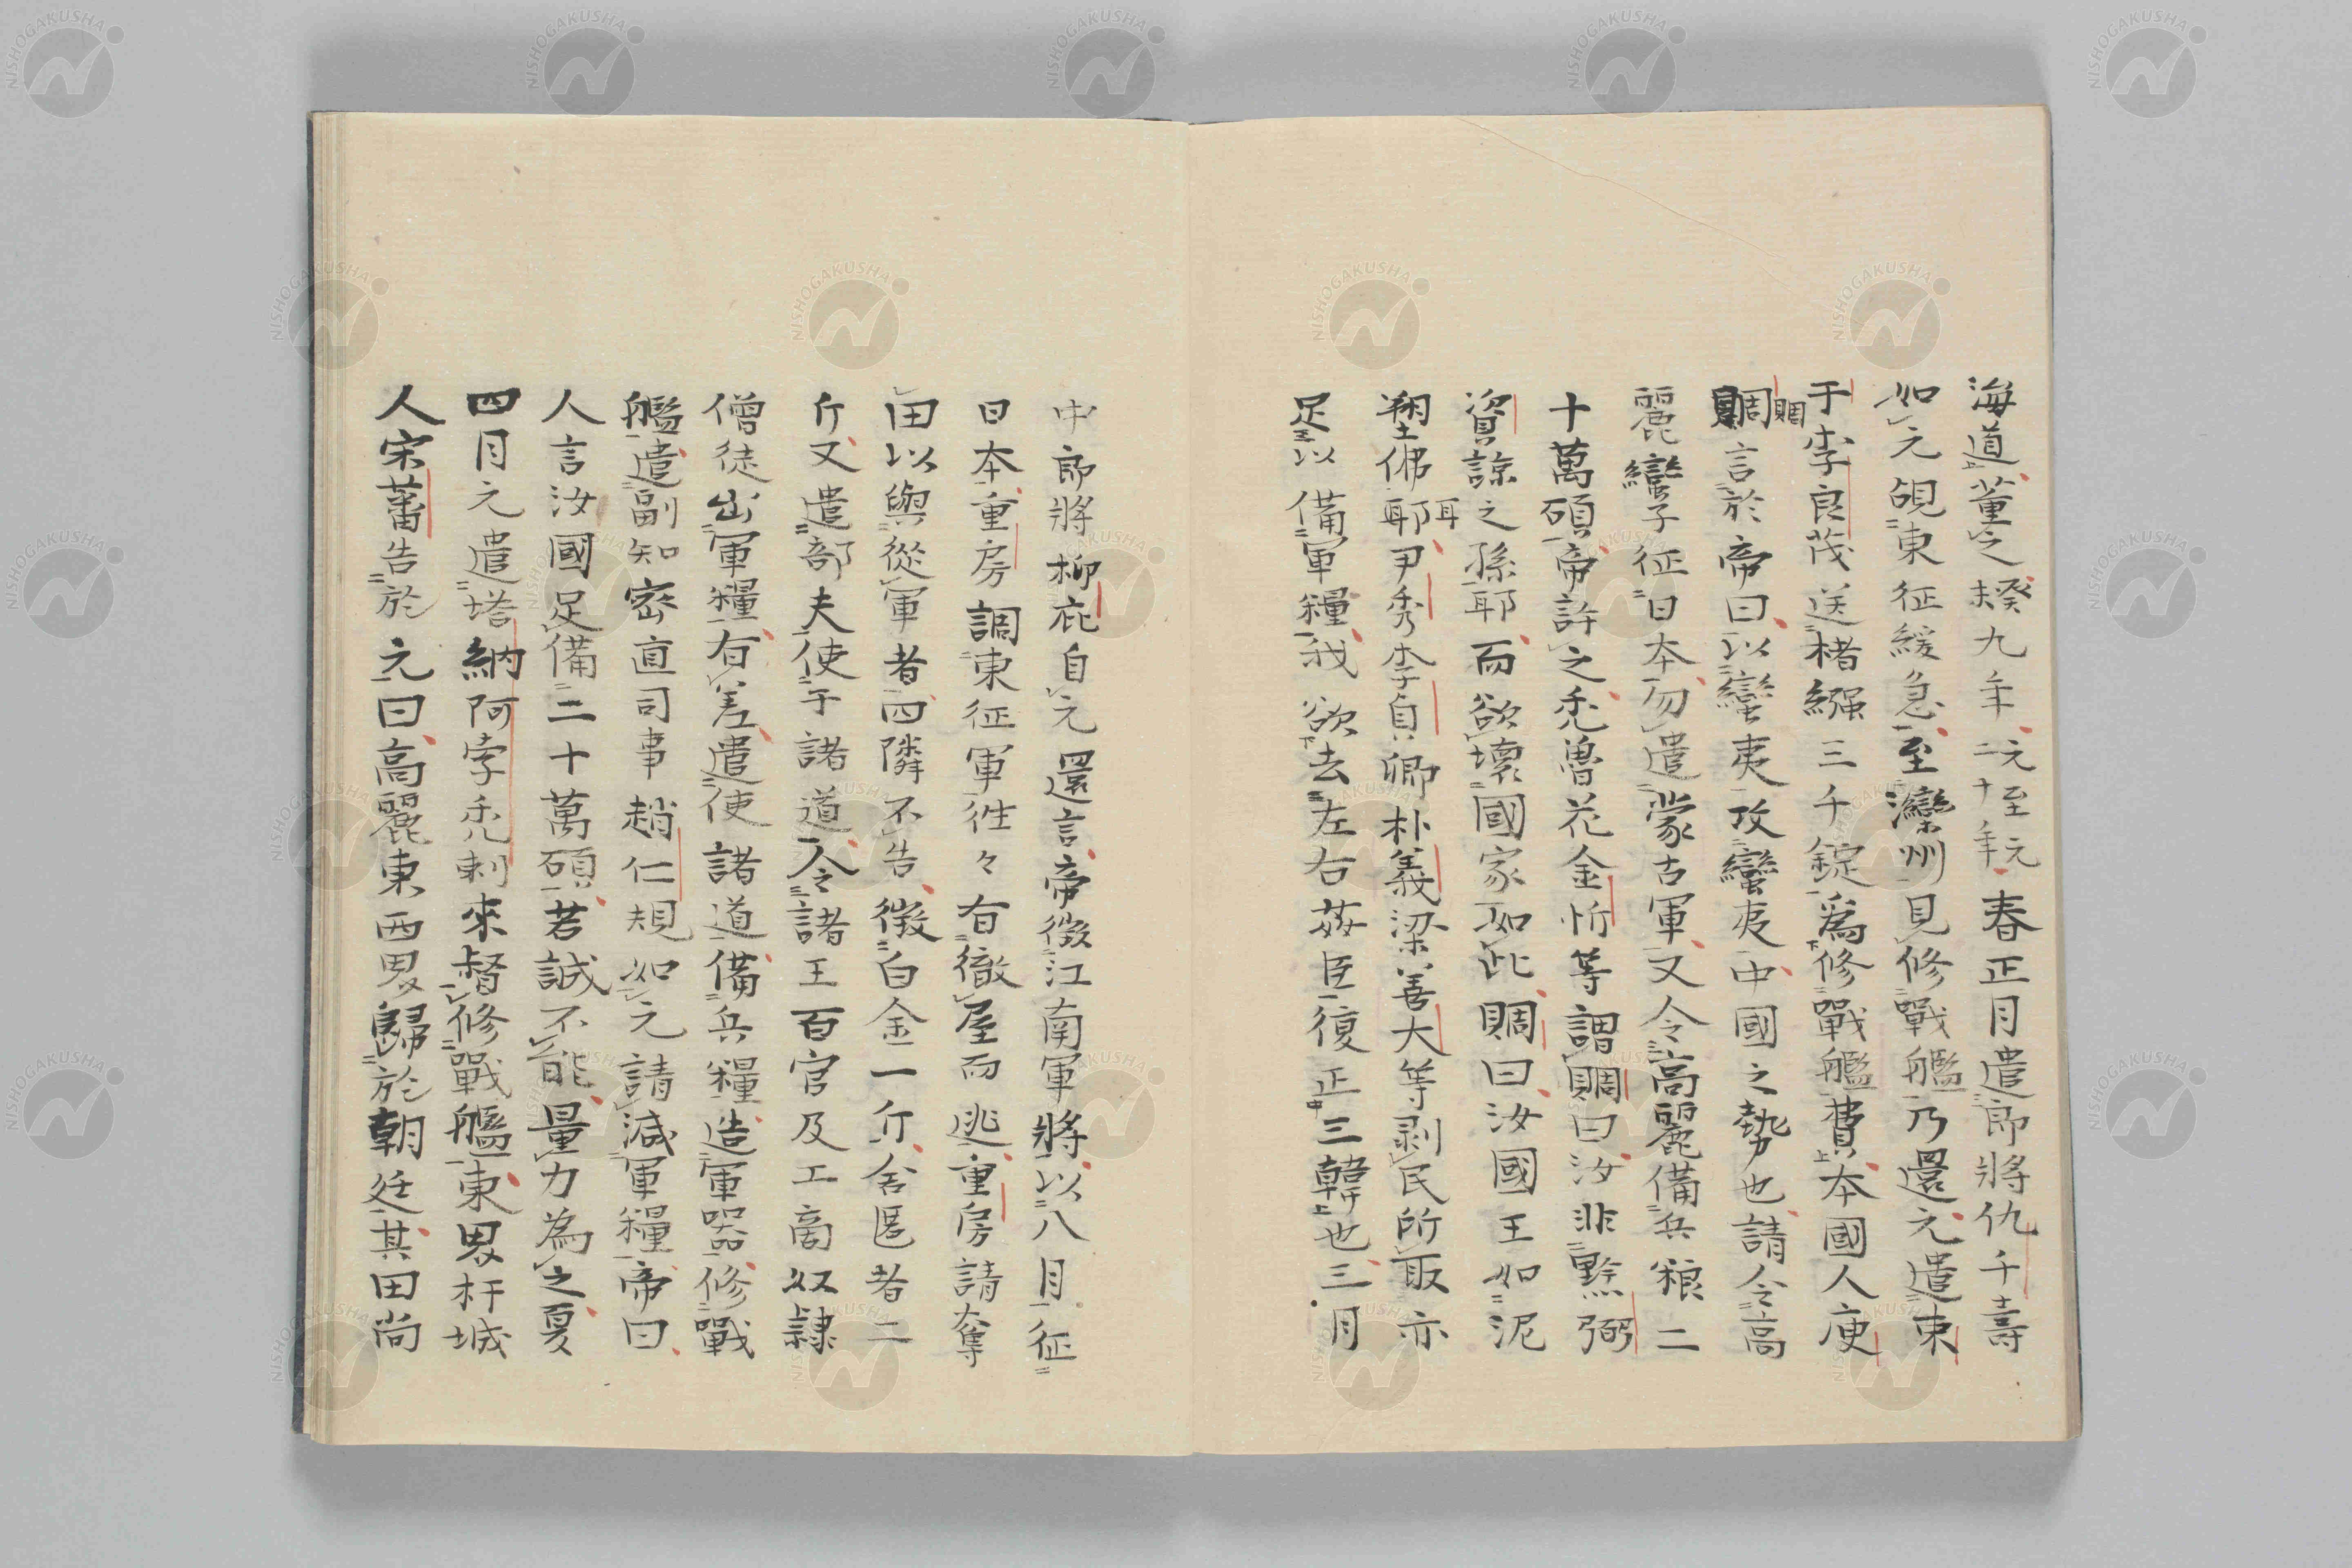 海道董之癸未九年元至元二十年春正月遣郎將仇千壽
如元覘東征緩急至灤州見修戰艦乃還元遣東
于李良茂送楮繦三千錠爲修戰艦費本國人庾
賙
賙言於帝曰以蠻夷攻蠻夷中國之勢也請令高
麗蠻子征日本勿遣蒙古軍又令高麗備兵粮二
十萬碩帝許之禿魯花金忻等謂賙曰汝非黔弼
資諒之孫耶而欲壞國家如此賙曰汝國王如泥
耳
塑佛耶尹秀李貞卿朴義梁善大等剥民所取亦
足以備軍糧我欲去左右姦臣復正三韓也三月
中郎將柳庇自元還言帝徴江南軍將以八月征
日本重房調東征軍徃々有徹屋而逃重房請奪
田以與從軍者四隣不告徴白金一斤舍匿者二
斤又遣部夫使于諸道令諸王百官及工商奴隷
僧徒出軍糧有差遣使諸道備兵糧造軍器修戰
艦遣副知密直司事趙仁規如元請減軍糧帝曰
人言汝國足備二十萬碩若誠不能量力為之夏
四月元遣塔納阿孛禿剌來督修戰艦東界杆城
人宋蕃告於元曰高麗東西界歸於朝廷其田尚
NISHOGAKUSHA